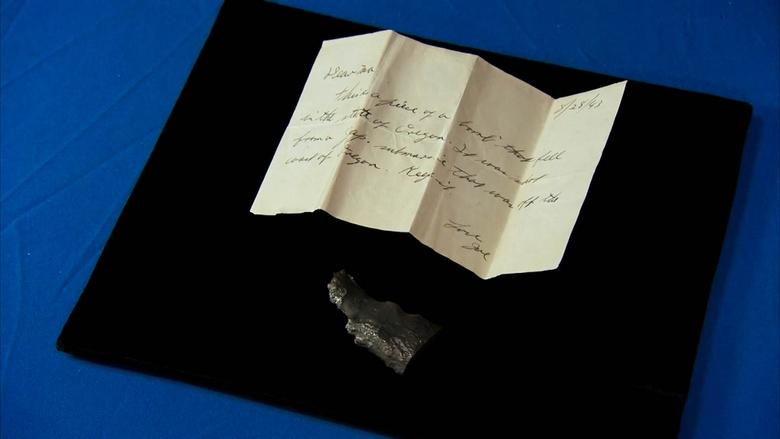 8/28/43
Dear
this is a piece of a bomb that fell
in the state of Oregon. It was shot
from a Jap. submarine that was off the
coast of Oregon. Keep it
Love